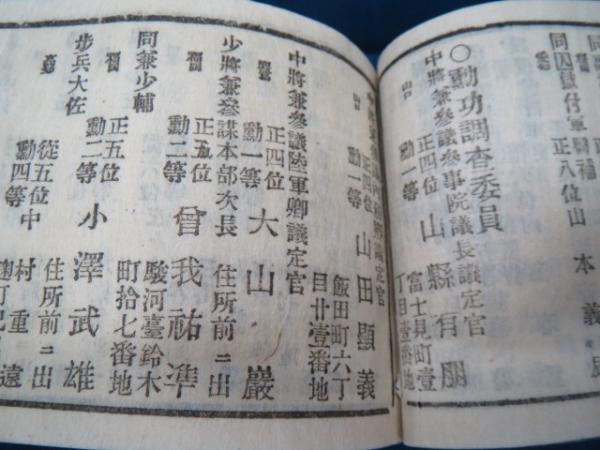 同囚獄付軍醫補
正八位 山本義
○勳功調査委員
中將兼參議參事院議長議定官
山口 正四位 勳一等 山縣有朋
富士見町壹丁目壹番地
山口 正四位 勳一等 山田顯義
飯田町六丁目廿壹番地
中將兼參議陸軍卿議定官
正四位 勳一等 大山巖
住所前ニ出
少將兼參謀本部次長
正五位 勳二等 曾我祐準
駿河臺鈴木町拾七番地
同兼少輔
正五位 勳二等 小澤武雄
住所前ニ出
步兵大佐
從五位 勳四等 中村重遠